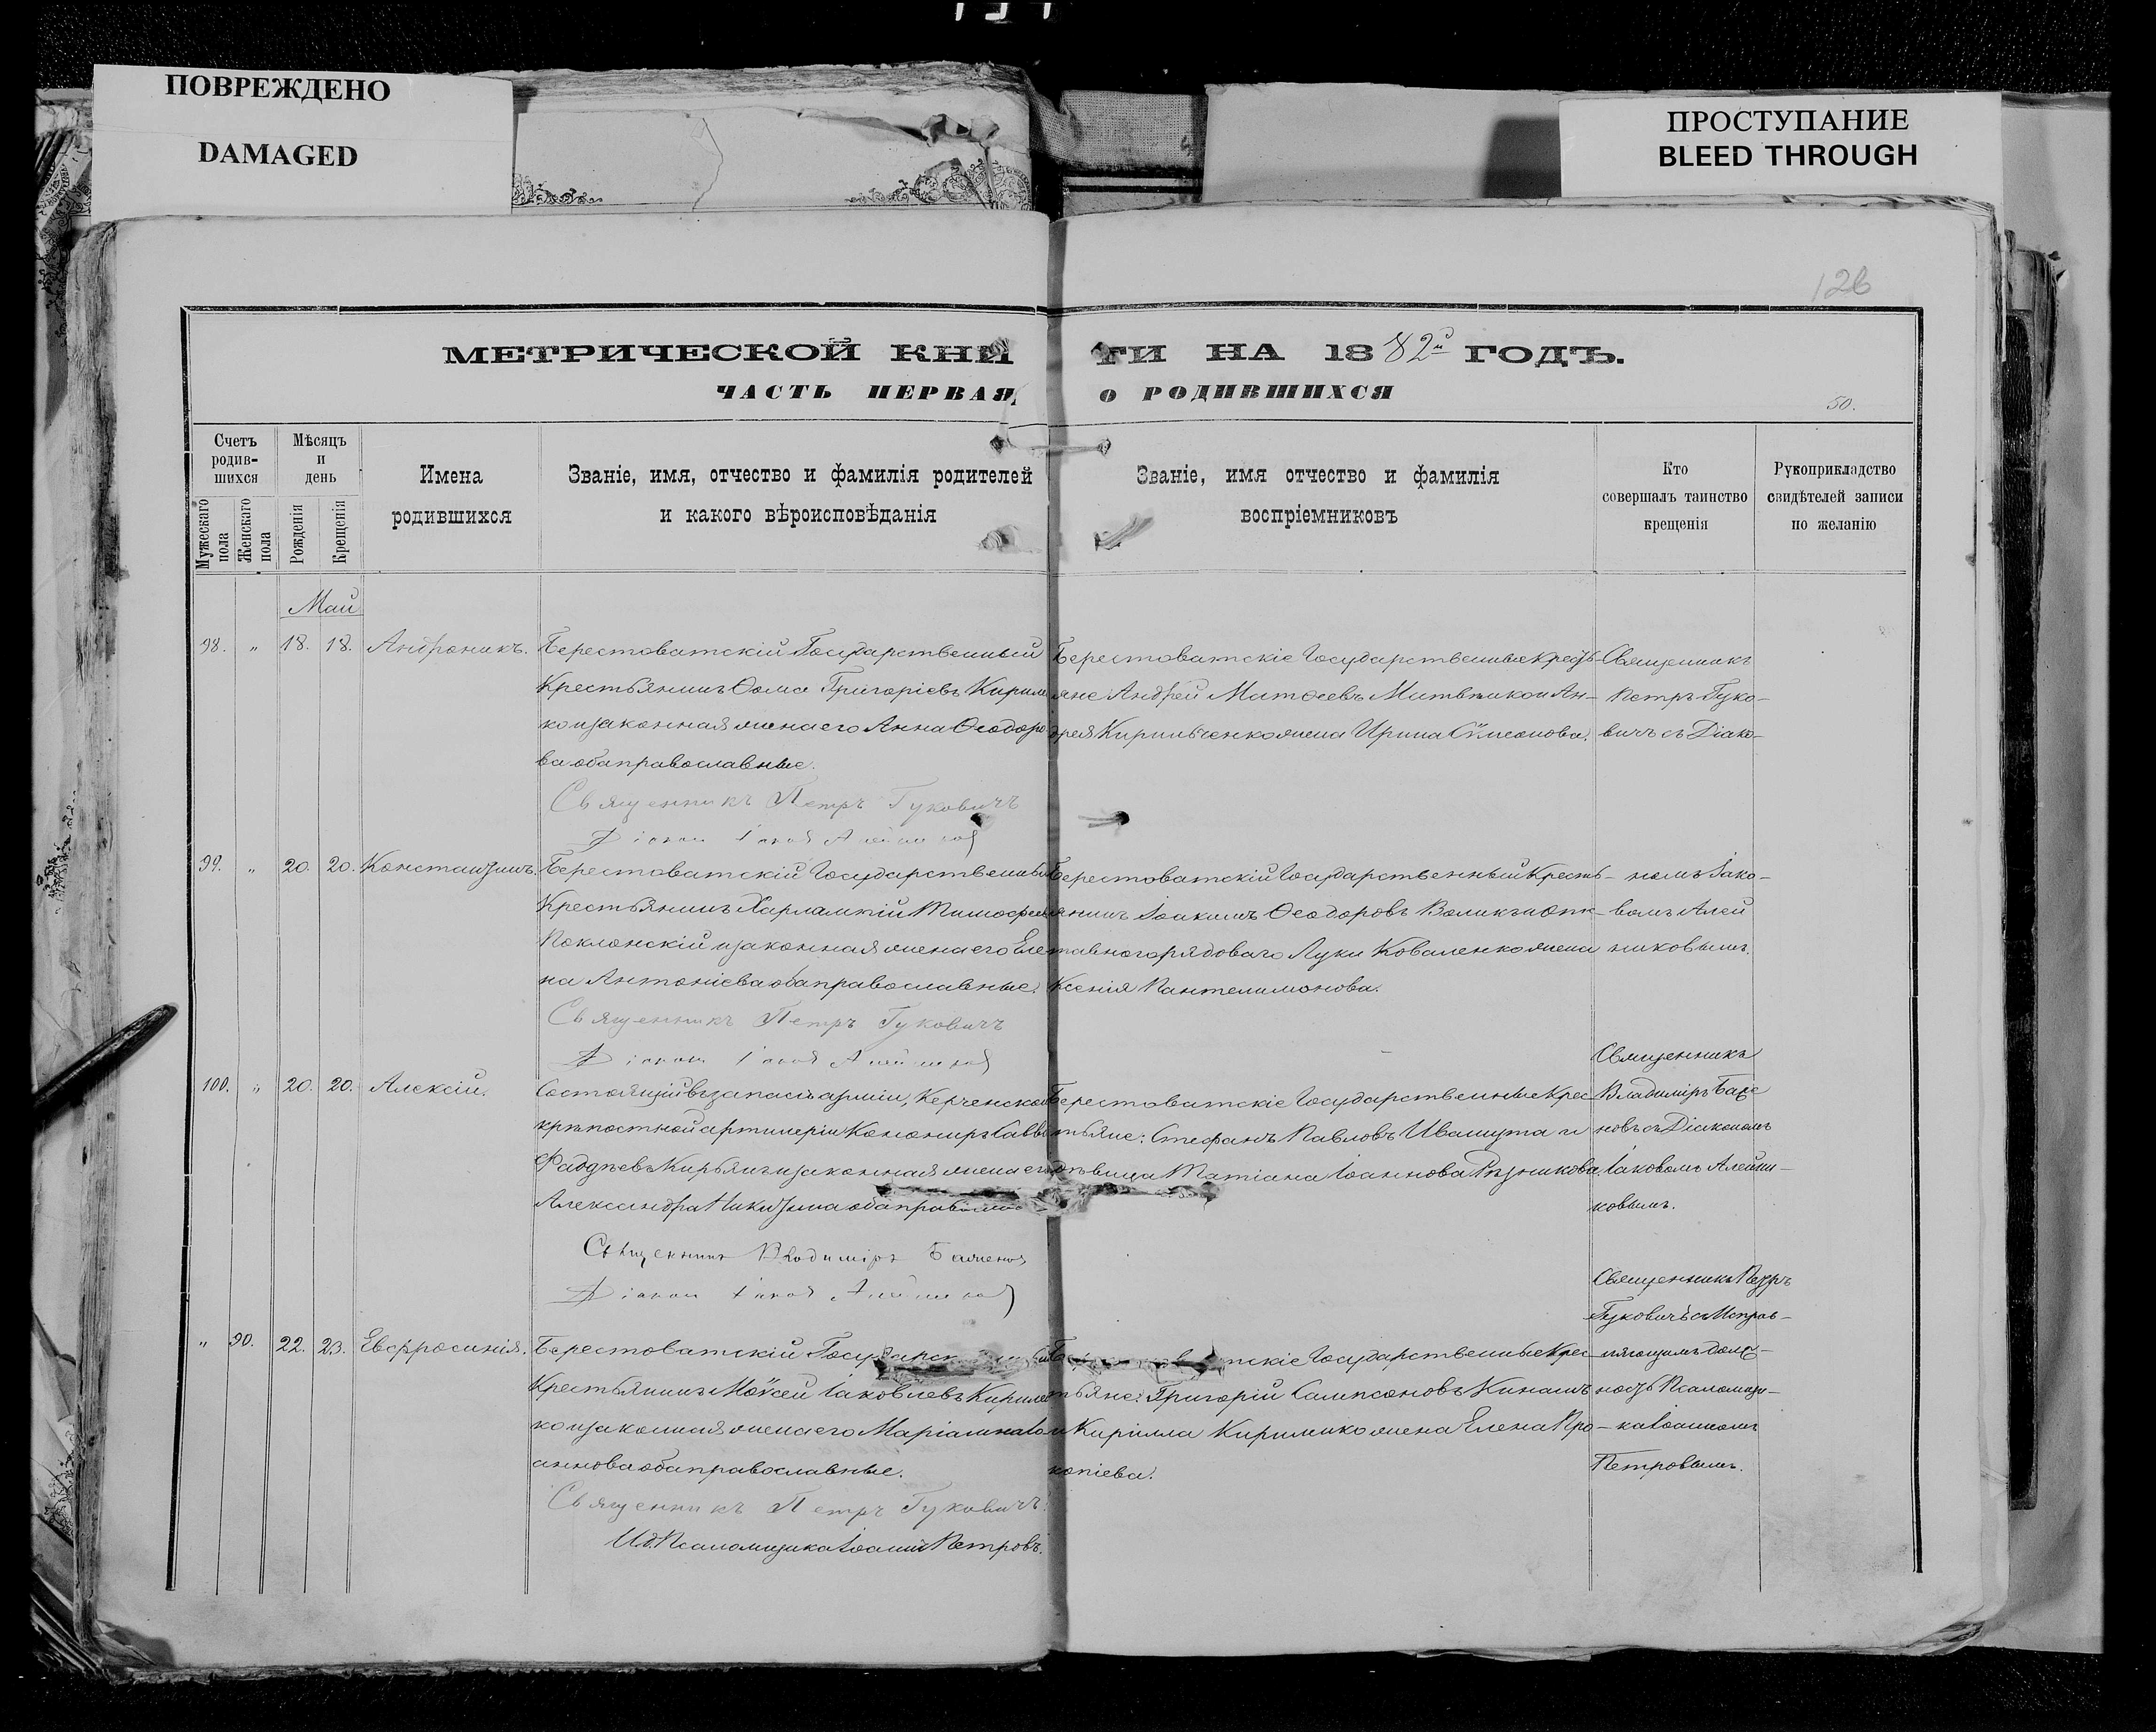 ПОВРЕЖДЕНО
DAMAGED
ПРОСТУПАНИЕ
BLEED THROUGH
126
МЕТРИЧЕСКОЙ КНИ ГИ НА 1882й ГОДЪ.
ЧАСТЬ ПЕРВАЯ, О РОДИВШИХСЯ
50.
Счетъ родив-шихся
Мужескаго пола
Женскаго пола
Мѣсяцъ и день
Рожденія
Крещенія
Имена родившихся
Званіе, имя, отчество и фамилія родителей
и какого вѣроисповѣданія
Званіе, имя отчество и фамилія
воспріемниковъ
Кто
совершалъ таинство
крещенія
Рукоприкладство
свидѣтелей записи
по желанію
Май
98. " 18. 18. Андроникъ.
Берестоватскій Государственный
Крестьянинъ Ѳома Григоріевъ Кирил
ко и законная жена его Анна Ѳеодоро
ва оба православные.
Священникъ Петръ Гуковичъ
Діакон Іаков Алейников
Берестоватскіе Государственные Кресть-
яне Андрей Матѳеевъ и Ан-
дрея Кирильченко жена Ирина Сѵмеонова.
Священникъ
Петръ Гуко-
вичъ съ Діако-
99. " 20. 20. Константинъ.
Берестоватскій Государственный
Крестьянинъ Харлампій Тимофеев
Поклонскій и законная жена его Еле
на Антоніева оба православные.
Священникъ Петръ Гуковичъ
Діакон Іаков Алейников
Берестоватскій Государственный Кресть-
янинъ Іоакимъ Ѳеодоровъ Воликъ и отс-
тавного рядоваго Луки Коваленко жена
Ксенія Пантелимонова.
номъ Іако-
вомъ Алей
никовымъ.
100. " 20. 20. Алексій.
Состоящій въ запасѣ арміи, Керченской
крѣпостной артилеріи Канониръ Савва
Фаддѣевъ Кирьянъ и законная жена его
Александра Никитина оба православные
Священник Владиміръ Баженов
Діакон Іаков Алейников
Берестоватскіе Государственные Крес
тьяне: Стефанъ Павловъ Ивашута и
дѣвица Татіана Іоаннова Рѣзникова.
Священникъ
Владиміръ Баже
новъ съ Діакономъ
Іаковомъ Алейни-
ковымъ.
" 90. 22. 23. Евфросинія.
Берестоватскій Государственный
Крестьянинъ Моѵсей Іаковлевъ Кирилен
ко и законная жена его Маріамна Іо
аннова оба православные.
Священникъ Петръ Гуковичъ.
И.д. Псаломщика Іоаннъ Петровъ.
Берестоватскіе Государственные Крес-
тьяне: Григорій Сампсоновъ Кинашъ
и Кирилла Кириленко жена Елена Про-
копіева.
Священникъ Петръ
Гуковичъ съ Исправ-
ляющимъ долж-
ность Псаломщи-
ка Іоанномъ
Петровымъ.